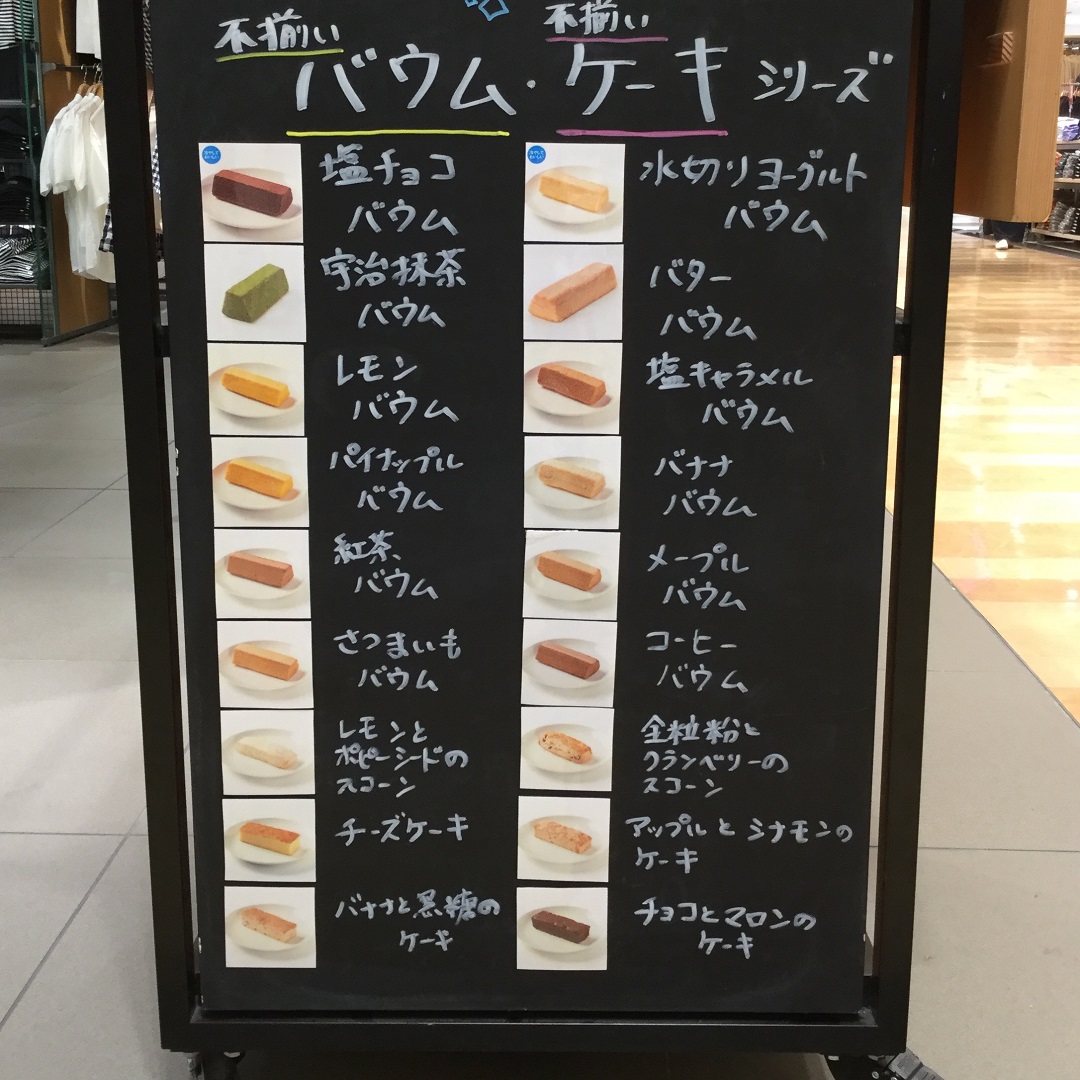 不揃い
不揃い
バウム・ケーキ シリーズ
塩チョコ
バウム
水切りヨーグルト
バウム
宇治抹茶
バウム
バター
バウム
レモン
バウム
塩キャラメル
バウム
パイナップル
バウム
バナナ
バウム
紅茶
バウム
メープル
バウム
さつまいも
バウム
コーヒー
バウム
レモンと
ポピーシードの
スコーン
全粒粉と
クランベリーの
スコーン
チーズケーキ
アップルとシナモンの
ケーキ
バナナと黒糖の
ケーキ
チョコとマロンの
ケーキ